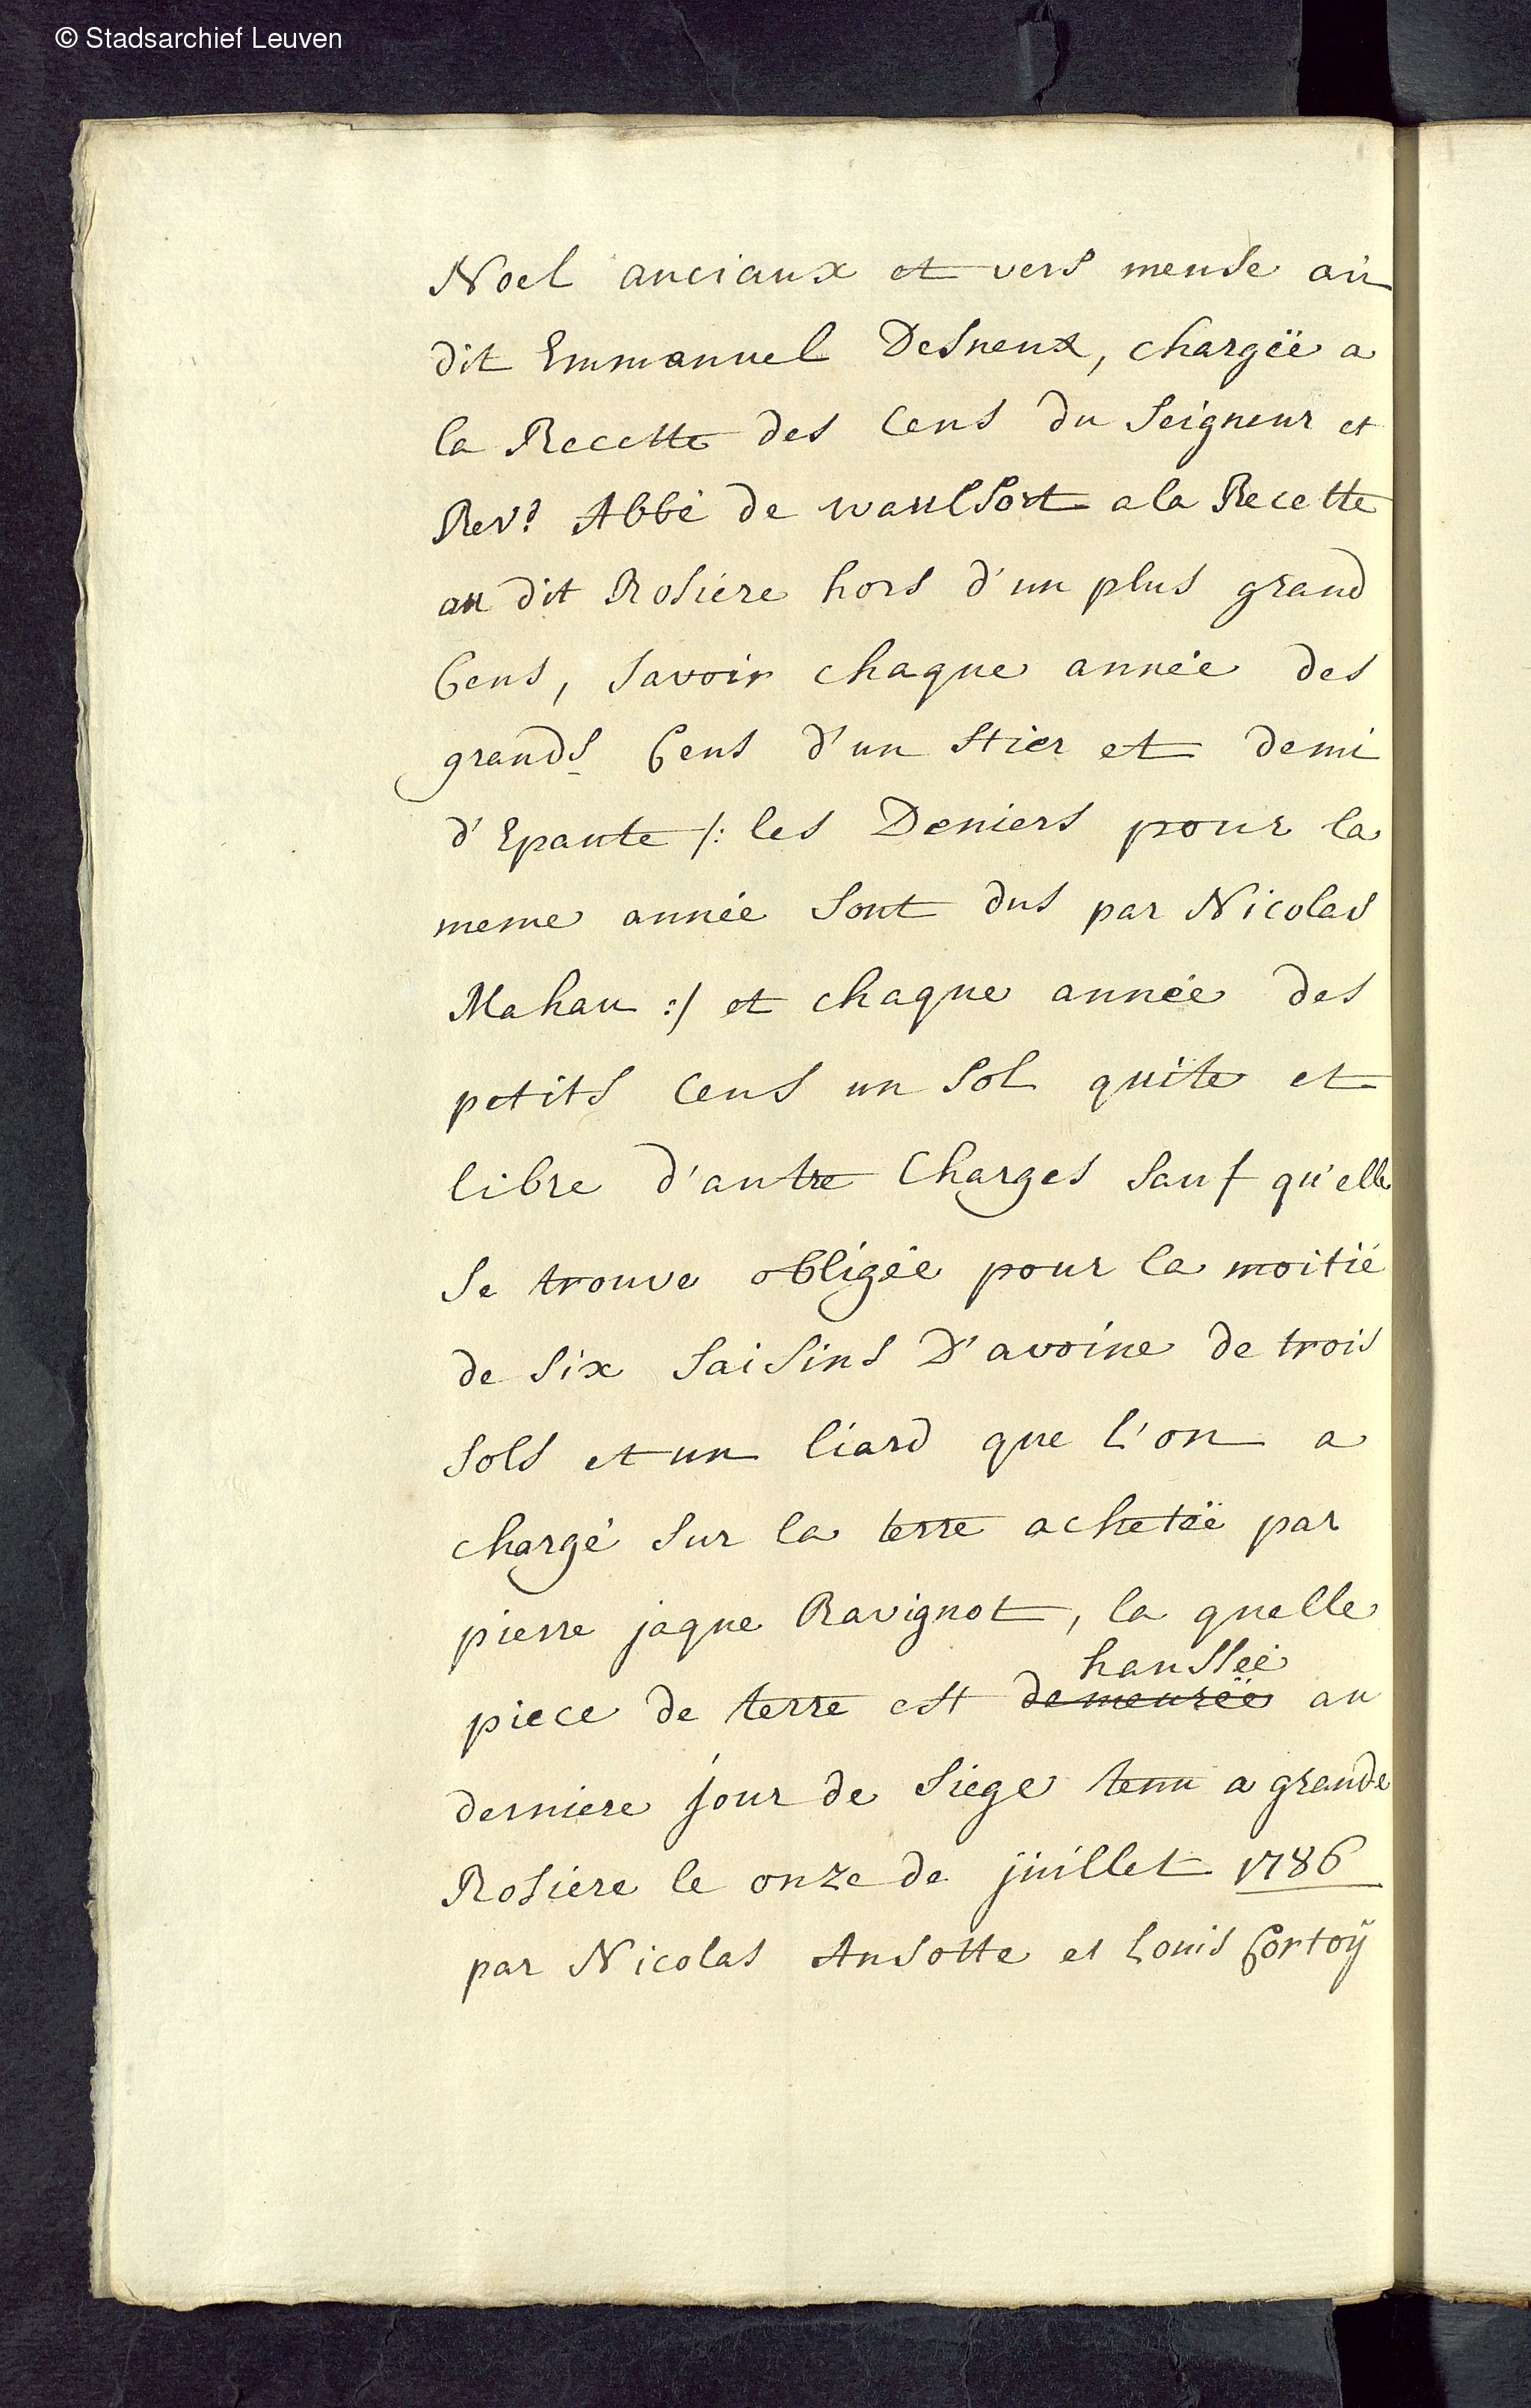 © Stadsarchief Leuven
Noel anciaux et vers meuse au
dit Emmanuel Desneux, chargëe a
la Recette des Cens du Seigneur et
Rev.d Abbé de waulsort a la Recette
au dit Rosiere hors d'un plus grand
Cens, savoir chaque année des
grands Cens d'un stier et demi
d'Epaute /: les Deniers pour la
meme année sont dus par Nicolas
Mahau :/ et chaque année des
petits Cens un sol quite et
libre d'autre Charges sauf qu'elle
se trouve obligée pour la moitié
de six saisins D'avoine de trois
sols et un liard que l'on a
chargé sur la terre achetëe par
pierre jaque Ravignot, la quelle
haussée
piece de terre est demeurëe au
derniere jour de siege tenu a grande
Rosiere le onze de juillet 1786
par Nicolas Ansotte et Louis Cortoÿ